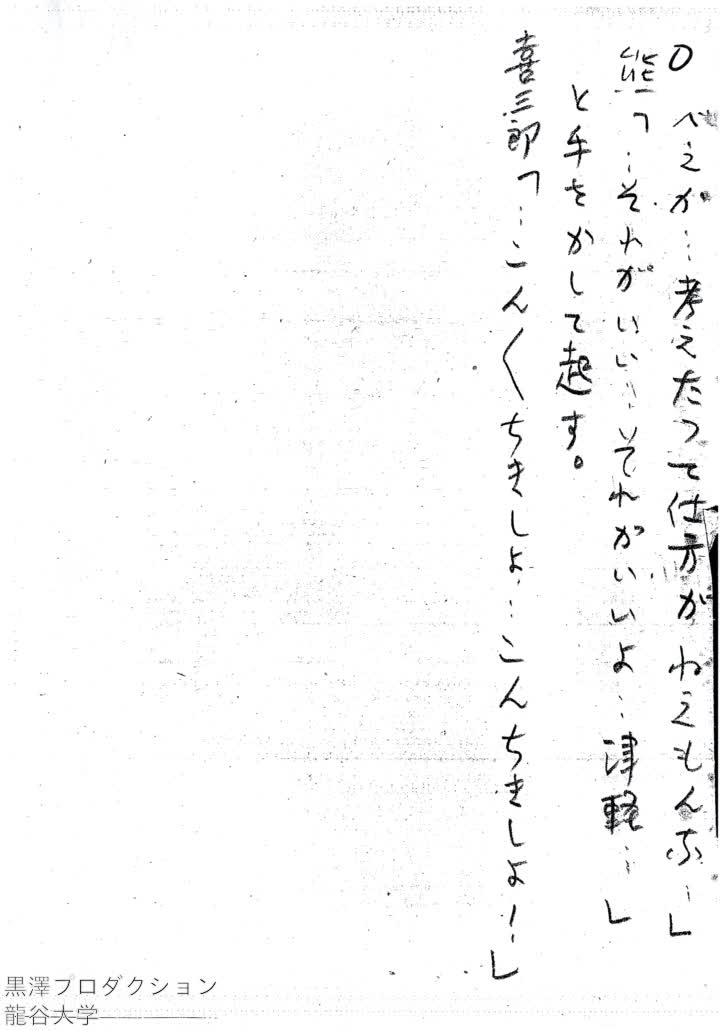 ○べえか…考えたつて仕方がねえもんな…」
熊「…それがいい…それがいいよ…津軽…」
と手をかして起す。
喜三郎「…こん〱ちきしよ…こんちきしよ！…」
黒澤プロダクション
龍谷大学